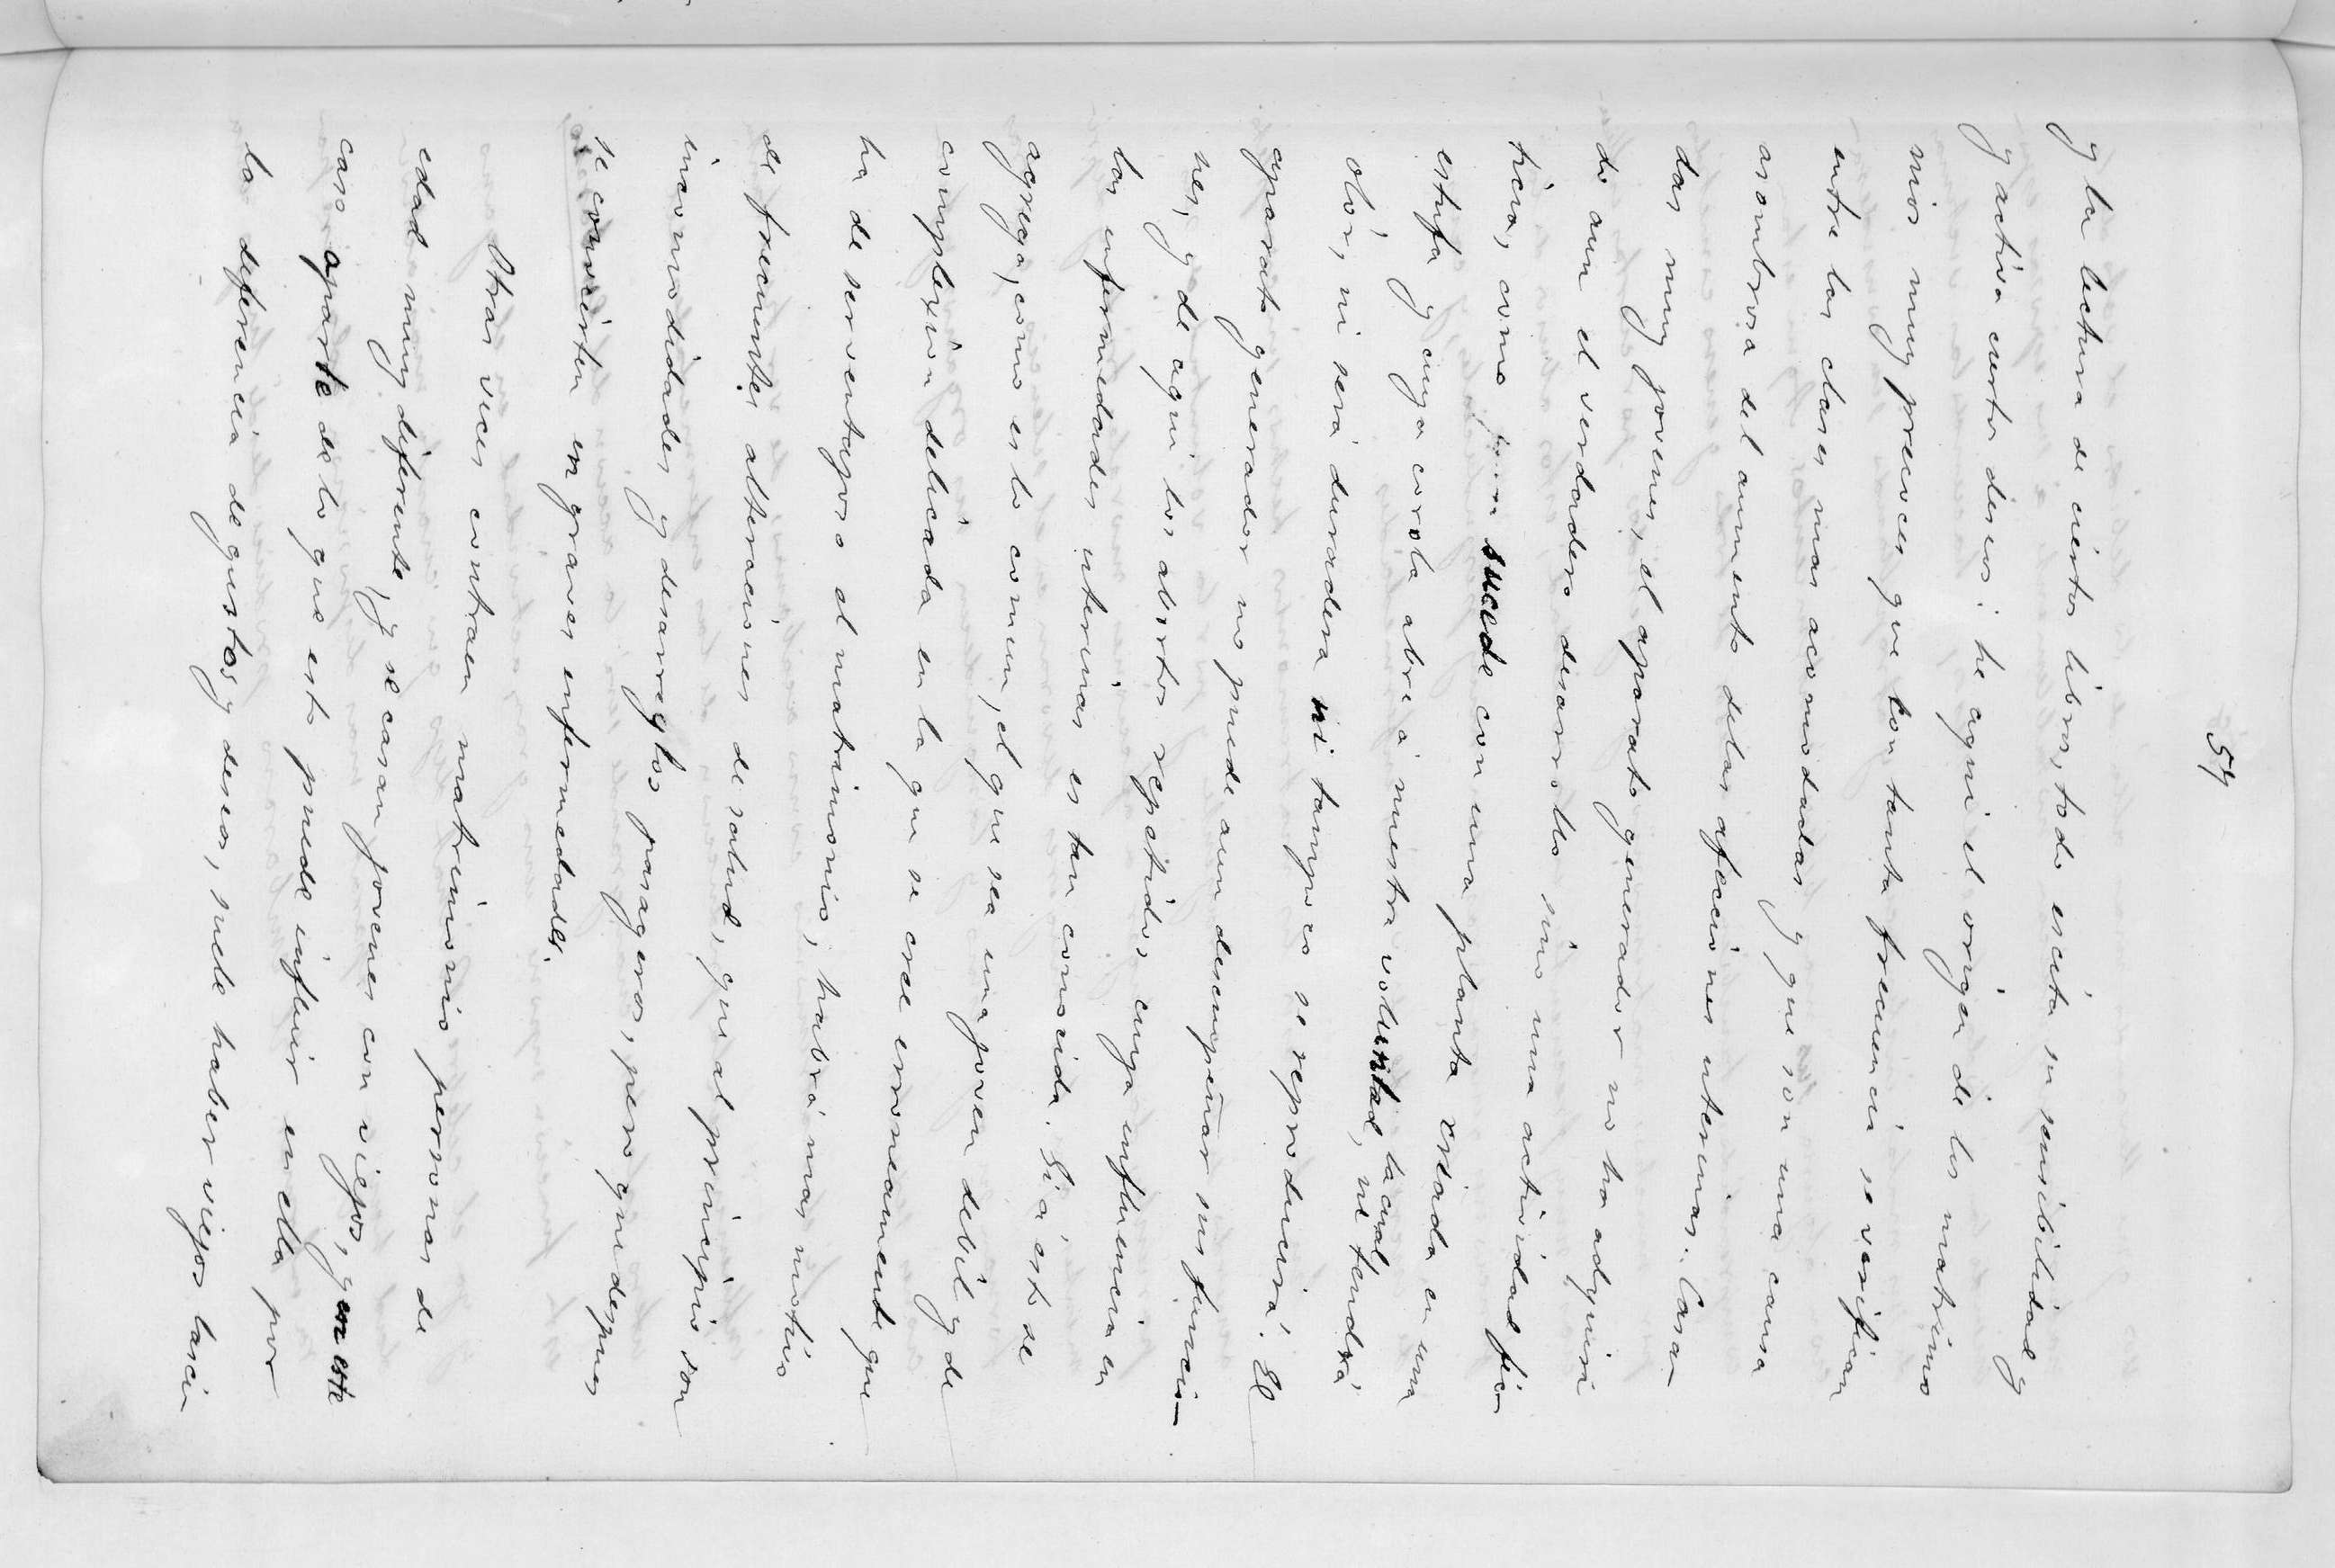 54
y la lectura de ciertos libros, todo escita su sensibilidad y
y activa cierto deseos: he aqui el origen de los matrimo
nios muy precoces que con tanta frecuencia se verifican
entre las clases mas acomodadas y que son una causa
asombrosa del aumento delas afecciones uterinas. Casar
das muy jovenes, el aparato generador no ha adquiri
do aun el verdadero desarrollo sino una actividad ficti
ticia, como sucede con una planta criada en una
estufa y cuya corola abre á nuestra voluntad, la cual ni tendrá
olór, ni será duradera ni tampoco se reproducirá. El
aparato generador no puede aun desempeñar sus funcio
nes, y de aqui los abortos repetidos, cuya influencia en
las enfermedades uterinas es tan conocida. Si á esto se
agrega, como es lo comun, el que sea una joven debíl y de
complexion delicada en la que se cree erroneamente que
ha de ser ventajoso el matrimonio, habrá mas motivo
de frecuentes alteraciones de salud, que al principio son
incomodidades y desarreglos pasageros, pero que despues
se conviérten en graves enfermedades.
Otras veces contraen matrimonio personas de
edad muy diferente, y se casan jovenes con viejos, y en este
caso aparte de lo que esto puede influir en ella por
la diferencia de gustos y deseos, suele haber viejos lasciv